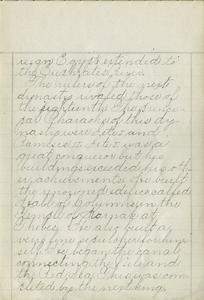 reign Egypt extended to
the Euphrates river.
The rulers of the next
dynasty rivaled those of
the eighteenth. The princi-
pal Pharaohs of this dy-
nasty were Seti I and
Rameses II. Seti I was a
great conqueror but his
buildings exceeded his other
achievements. He built
the renowned edifice called
Hall of Columns in the
Temple of Karnak at
Thebes. He also built a
very fine sepulcher for him-
self. He began the canal
connecting the Nile and
the Red Sea. This was com-
pleted by the next king.